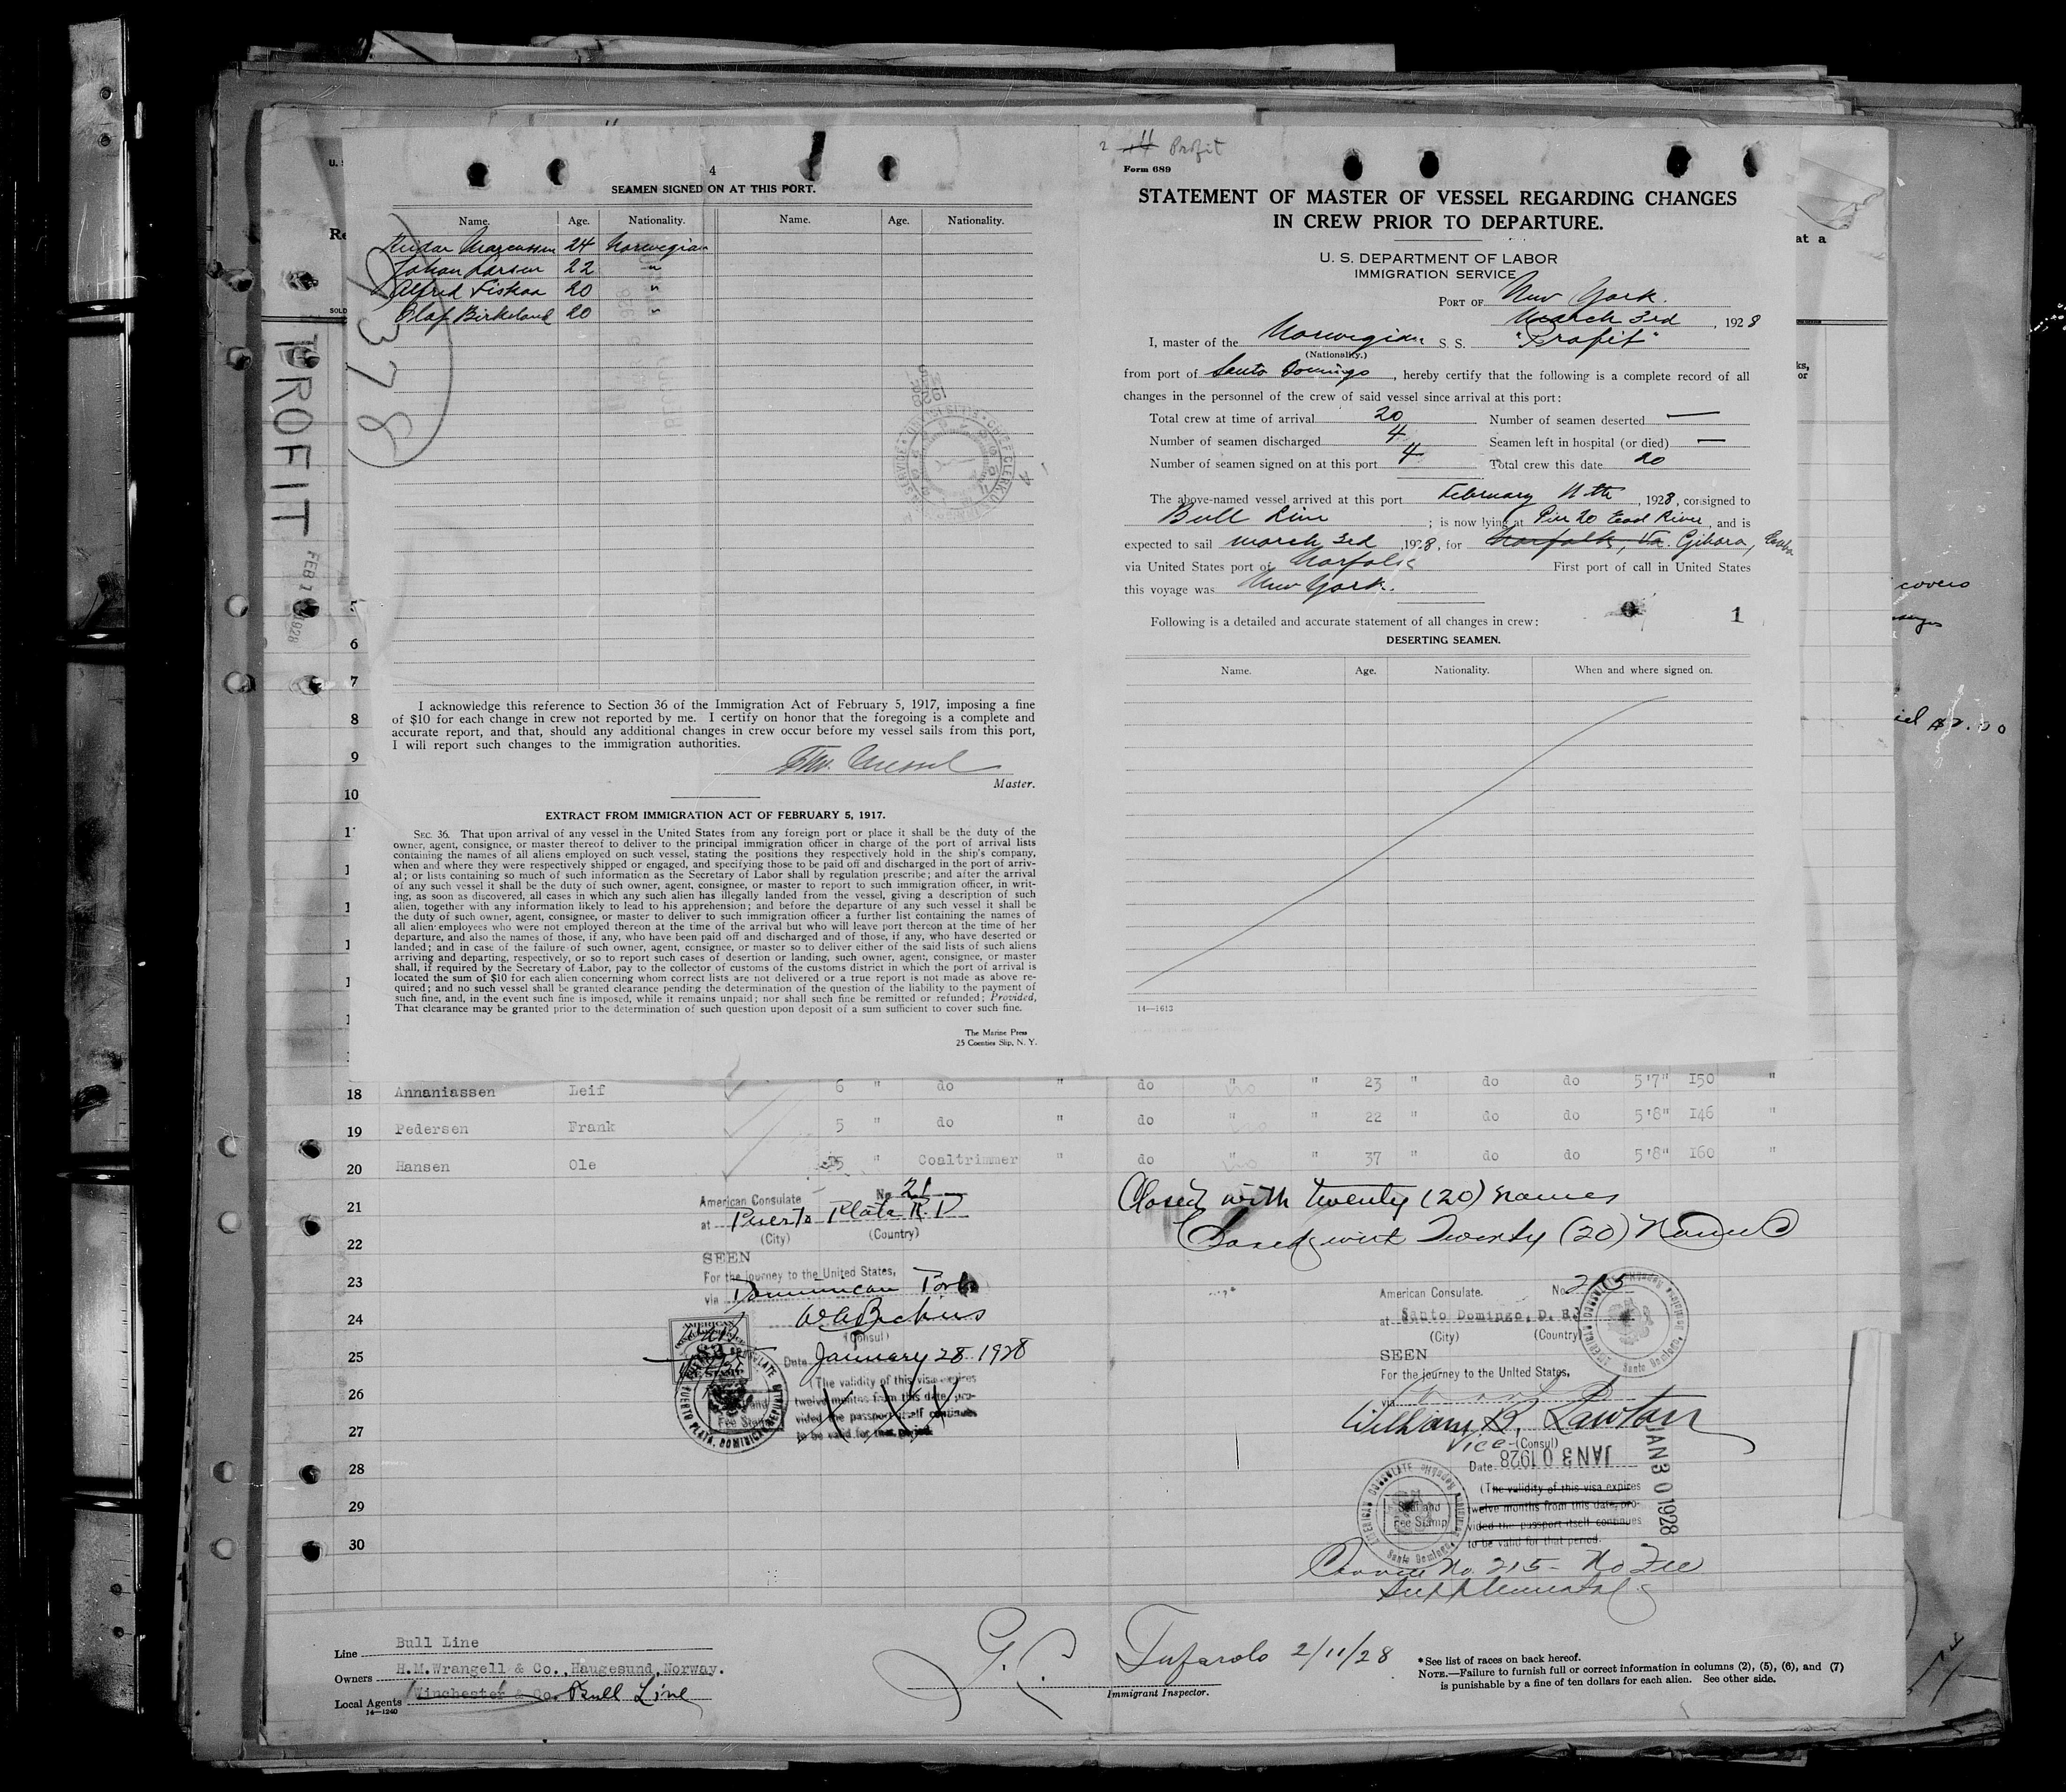 4
SEAMEN SIGNED ON AT THIS PORT.
Name. Age. Nationality. Name. Age. Nationality.
Reidar Marcussen 24 Norwegian
Johan Larsen 22 "
Alfred Fiskaa 20 "
Olaf Birkeland 20 "
9378
PROFIT
FEB 1 1928
I acknowledge this reference to Section 36 of the Immigration Act of February 5, 1917, imposing a fine
of $10 for each change in crew not reported by me. I certify on honor that the foregoing is a complete and
accurate report, and that, should any additional changes in crew occur before my vessel sails from this port,
I will report such changes to the immigration authorities.
Master.
EXTRACT FROM IMMIGRATION ACT OF FEBRUARY 5, 1917.
SEC. 36. That upon arrival of any vessel in the United States from any foreign port or place it shall be the duty of the
owner, agent, consignee, or master thereof to deliver to the principal immigration officer in charge of the port of arrival lists
containing the names of all aliens employed on such vessel, stating the positions they respectively hold in the ship's company,
when and where they were respectively shipped or engaged, and specifying those to be paid off and discharged in the port of arriv-
al; or lists containing so much of such information as the Secretary of Labor shall by regulation prescribe; and after the arrival
of any such vessel it shall be the duty of such owner, agent, consignee, or master to report to such immigration officer, in writ-
ing, as soon as discovered, all cases in which any such alien has illegally landed from the vessel, giving a description of such
alien, together with any information likely to lead to his apprehension; and before the departure of any such vessel it shall be
the duty of such owner, agent, consignee, or master to deliver to such immigration officer a further list containing the names of
all alien employees who were not employed thereon at the time of the arrival but who will leave port thereon at the time of her
departure, and also the names of those, if any, who have been paid off and discharged and of those, if any, who have deserted or
landed; and in case of the failure of such owner, agent, consignee, or master so to deliver either of the said lists of such aliens
arriving and departing, respectively, or so to report such cases of desertion or landing, such owner, agent, consignee, or master
shall, if required by the Secretary of Labor, pay to the collector of customs of the customs district in which the port of arrival is
located the sum of $10 for each alien concerning whom correct lists are not delivered or a true report is not made as above re-
quired; and no such vessel shall be granted clearance pending the determination of the question of the liability to the payment of
such fine, and, in the event such fine is imposed, while it remains unpaid; nor shall such fine be remitted or refunded; Provided,
That clearance may be granted prior to the determination of such question upon deposit of a sum sufficient to cover such fine.
The Marine Press
25 Coenties Slip, N. Y.
2 Profit
Form 689
STATEMENT OF MASTER OF VESSEL REGARDING CHANGES
IN CREW PRIOR TO DEPARTURE.
U. S. DEPARTMENT OF LABOR
IMMIGRATION SERVICE
PORT OF New York.
March 3rd, 1928
I, master of the Norwegian S. S. "Profit"
(Nationality.)
from port of Santo Domingo, hereby certify that the following is a complete record of all
changes in the personnel of the crew of said vessel since arrival at this port:
Total crew at time of arrival 20 Number of seamen deserted —
Number of seamen discharged 4 Seamen left in hospital (or died) —
Number of seamen signed on at this port 4 Total crew this date 20
The above-named vessel arrived at this port February 11th, 1928, consigned to
Bull Line; is now lying at Pier 20 East River, and is
expected to sail March 3rd, 1928, for Norfolk, Va. Gibara, Cuba
via United States port of Norfolk First port of call in United States
this voyage was New York.
Following is a detailed and accurate statement of all changes in crew: 1
DESERTING SEAMEN.
Name. Age. Nationality. When and where signed on.
14—1613
at a
ks,
or
covers
$2.00
6
7
8
9
10
18 Annaniassen Leif 6 " do " do no " 23 " do do 5'7" 150 "
19 Pedersen Frank 5 " do " do no " 22 " do do 5'8" 146 "
20 Hansen Ole 15 " Coaltrimmer " do no " 37 " do do 5'8" 160 "
21
22
23
24
25
26
27
28
29
30
American Consulate No 21
at Puerto Plata R.D
(City) (Country)
SEEN
For the journey to the United States,
via Dominican Ports
W A Bickers
(Consul)
Date January 28. 1928
(The validity of this visa expires
twelve months from this date, pro-
vided the passport itself continues
to be valid for that period.
Fee Stamp
PUERTO PLATA, DOMINICAN REPUBLIC
Closed with twenty (20) names
Closed with Twenty (20) Names
American Consulate. No 215
at Santo Domingo, D. R.
(City) (Country)
SEEN
For the journey to the United States,
via
William B. Lawton
Vice (Consul)
Date JAN 30 1928
JAN 30 1928
(The validity of this visa expires
twelve months from this date, pro-
vided the passport itself continues
to be valid for that period.
AMERICAN CONSULATE
Seal and
Fee Stamp
Santo Domingo
Service No. 215 - No Fee
Supplemental
Line Bull Line
Owners H.M.Wrangell & Co., Haugesund, Norway.
Local Agents Winchester & Co. Bull Line
14—1240
G. C. Tufarolo 2/11/28
Immigrant Inspector.
*See list of races on back hereof.
NOTE.—Failure to furnish full or correct information in columns (2), (5), (6), and (7)
is punishable by a fine of ten dollars for each alien. See other side.